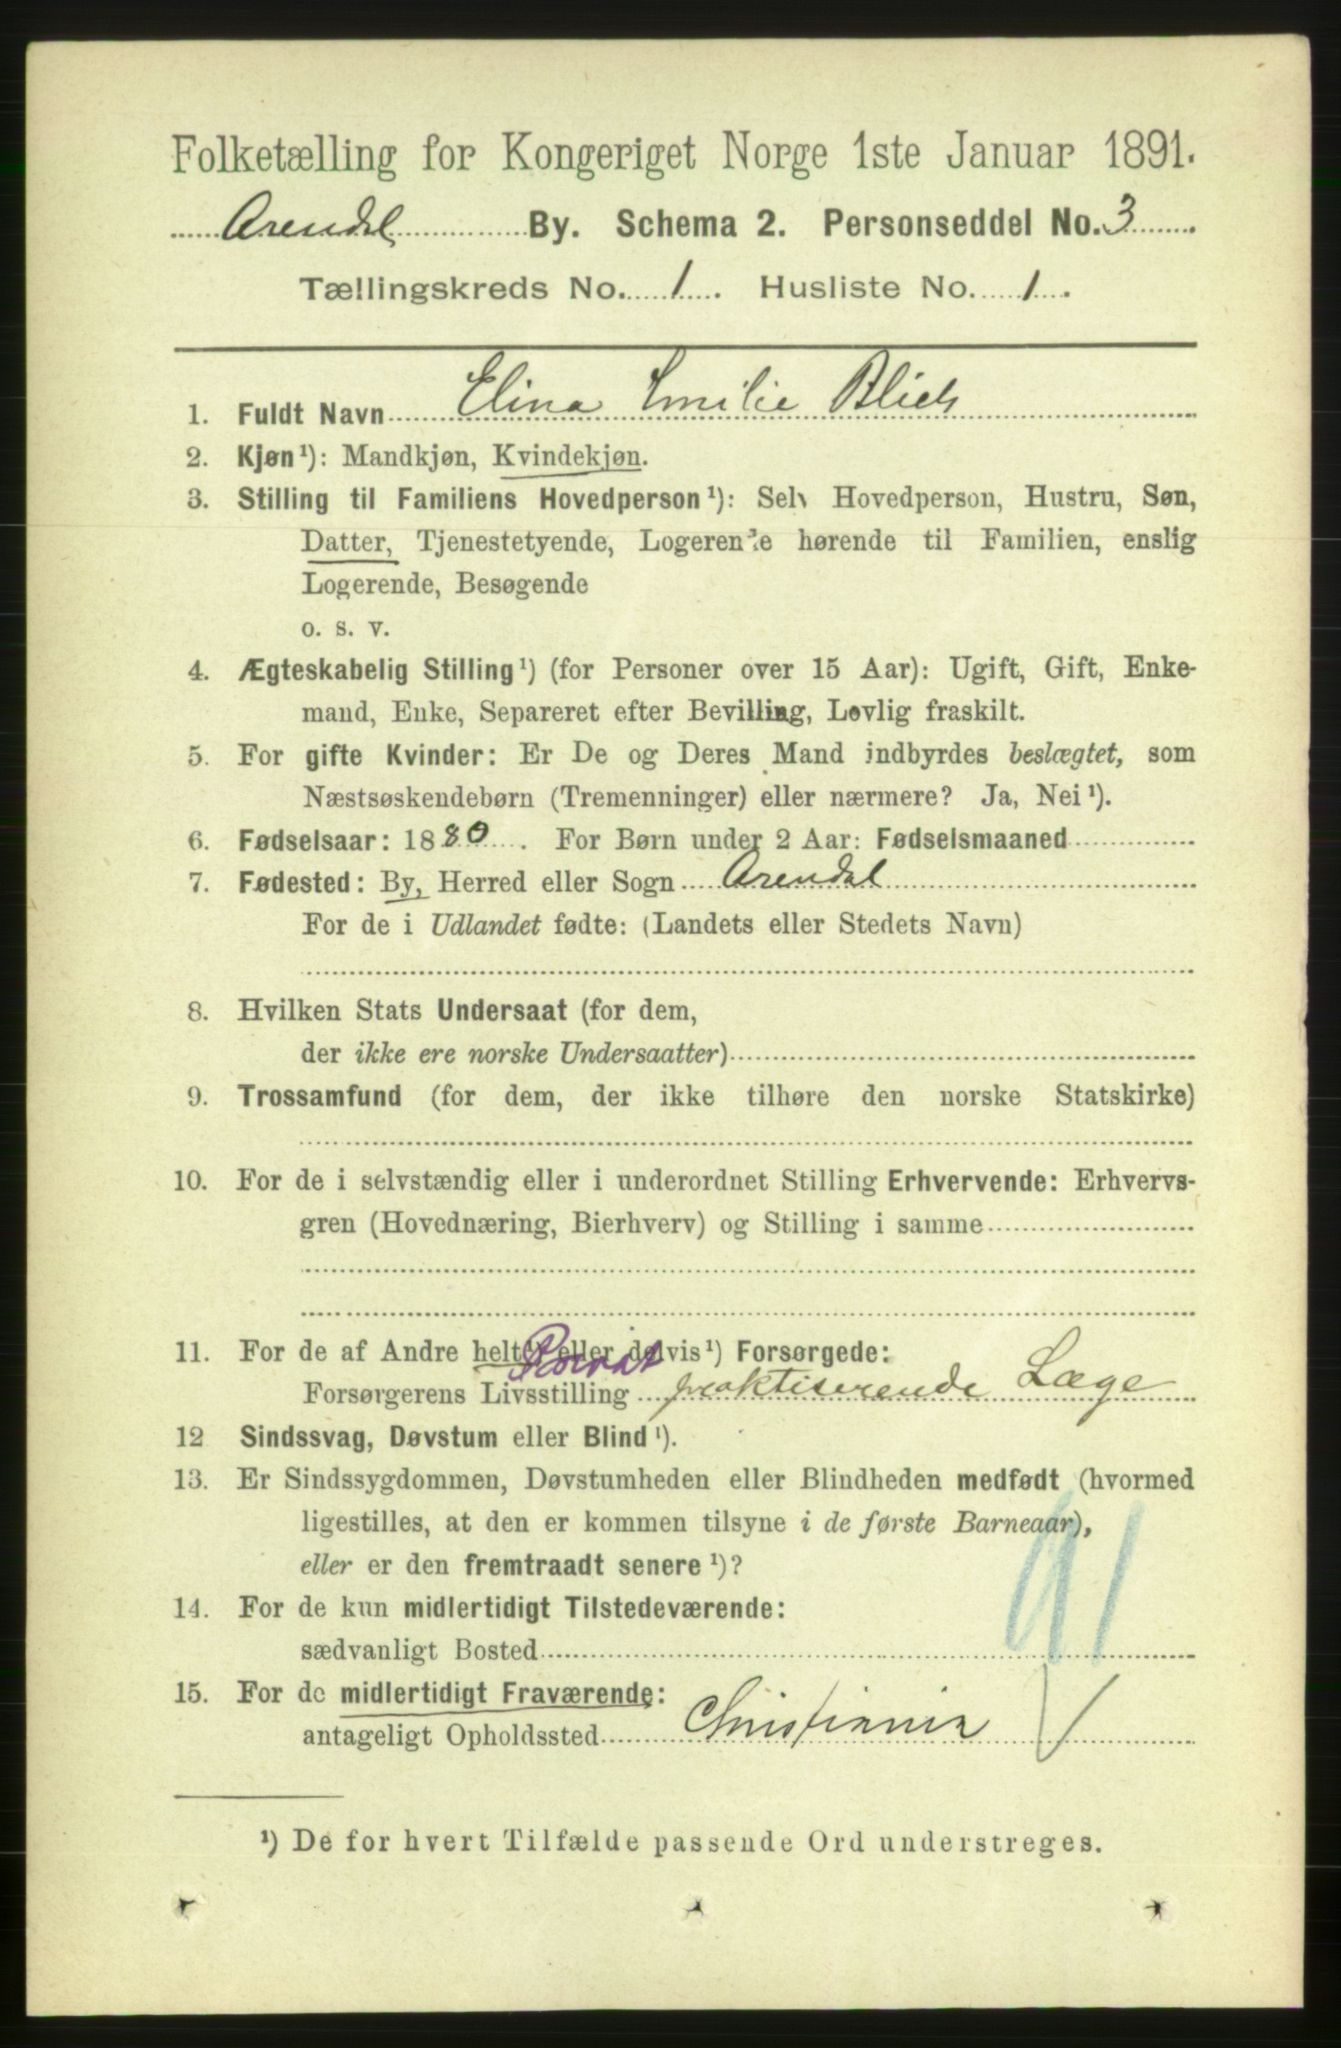 Folketælling for Kongeriget Norge 1ste Januar 1891.
Arendal By. Schema 2. Personseddel No. 3
Tællingskreds No. 1. Husliste No. 1.
1. Fuldt Navn Elina Emilie Blich
2. Kjøn ¹): Mandkjøn, Kvindekjøn.
3. Stilling til Familiens Hovedperson ¹): Selv Hovedperson, Hustru, Søn,
Datter, Tjenestetyende, Logerende hørende til Familien, enslig
Logerende, Besøgende
o. s. v.
4. Ægteskabelig Stilling ¹) (for Personer over 15 Aar): Ugift, Gift, Enke-
mand, Enke, Separeret efter Bevilling, Lovlig fraskilt.
5. For gifte Kvinder: Er De og Deres Mand indbyrdes beslægtet, som
Næstsøskendebørn (Tremenninger) eller nærmere? Ja, Nei ¹).
6. Fødselsaar: 1880. For Børn under 2 Aar: Fødselsmaaned
7. Fødested: By, Herred eller Sogn Arendal
For de i Udlandet fødte: (Landets eller Stedets Navn)
8. Hvilken Stats Undersaat (for dem,
der ikke ere norske Undersaatter)
9. Trossamfund (for dem, der ikke tilhøre den norske Statskirke)
10. For de i selvstændig eller i underordnet Stilling Erhvervende: Erhvervs-
gren (Hovednæring, Bierhverv) og Stilling i samme
11. For de af Andre helt ¹) eller delvis ¹) Forsørgede:
Privat
Forsørgerens Livsstilling praktiserende Læge
12 Sindssvag, Døvstum eller Blind ¹).
13. Er Sindssygdommen, Døvstumheden eller Blindheden medfødt (hvormed
ligestilles, at den er kommen tilsyne i de første Barneaar),
eller er den fremtraadt senere ¹)?
91
14. For de kun midlertidigt Tilstedeværende:
sædvanligt Bosted
15. For de midlertidigt Fraværende:
antageligt Opholdssted Christiania
¹) De for hvert Tilfælde passende Ord understreges.